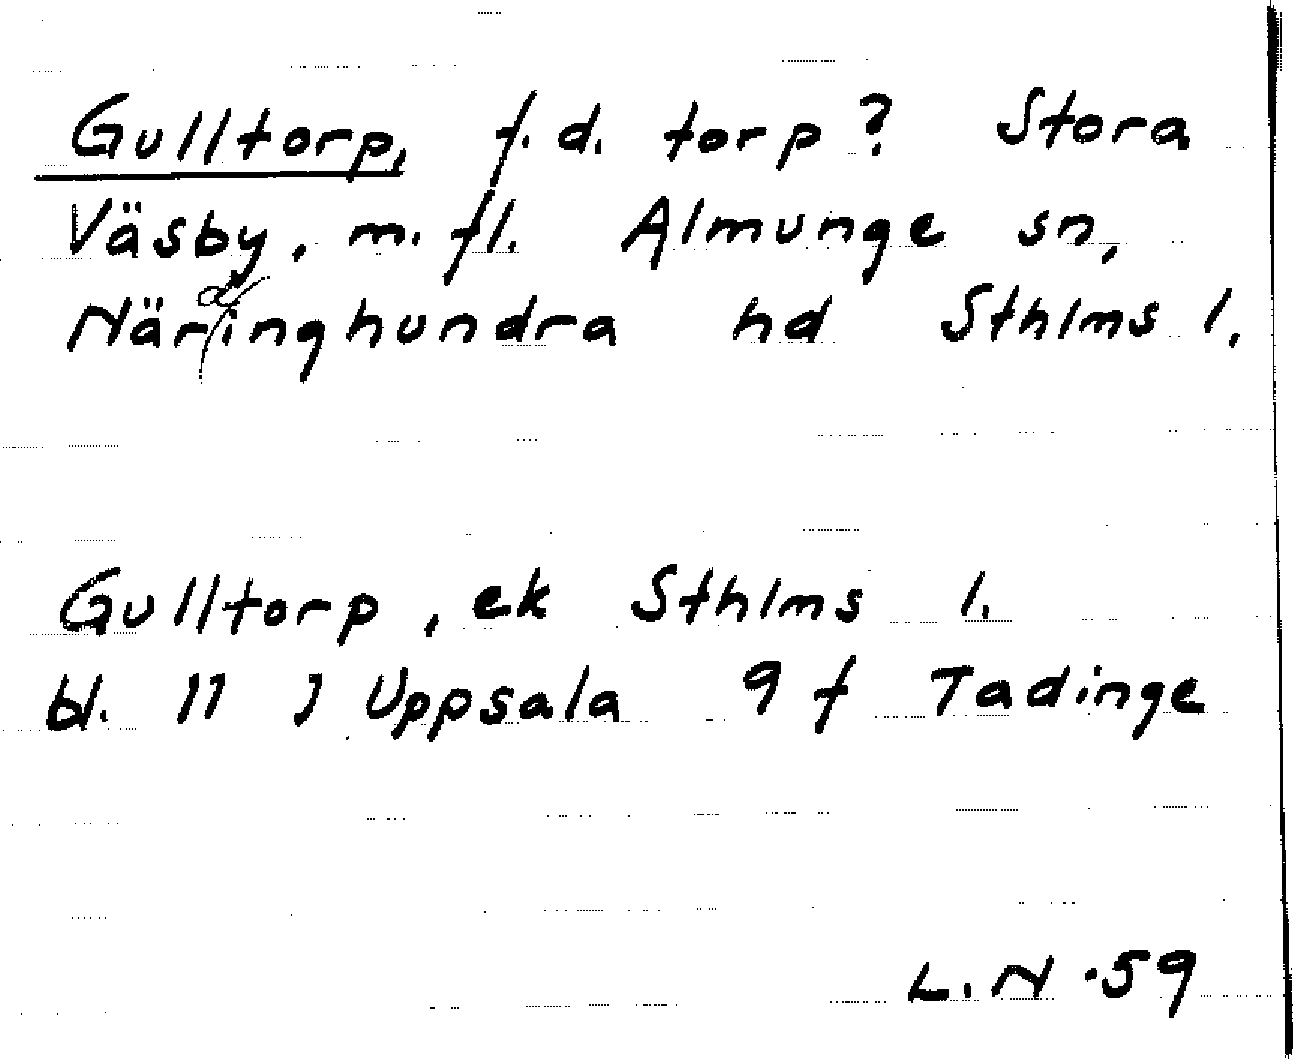 Gulltorp, f.d. torp? Stora
Väsby, m.fl. Almunge sn,
Närdinghundra hd Sthlms l.
Gulltorp, ek Sthlms l.
bl. 11 J Uppsala 9 f Tadinge
L.N. -59